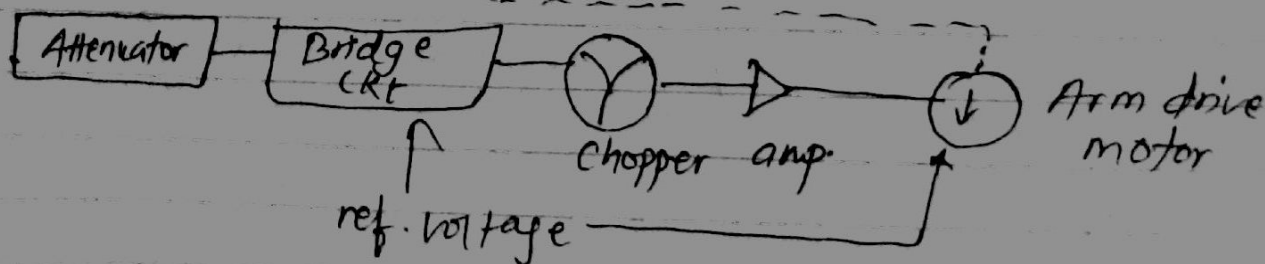 Attenuator
Bridge
CKt
Chopper
amp.
Arm drive
motor
ref. voltage